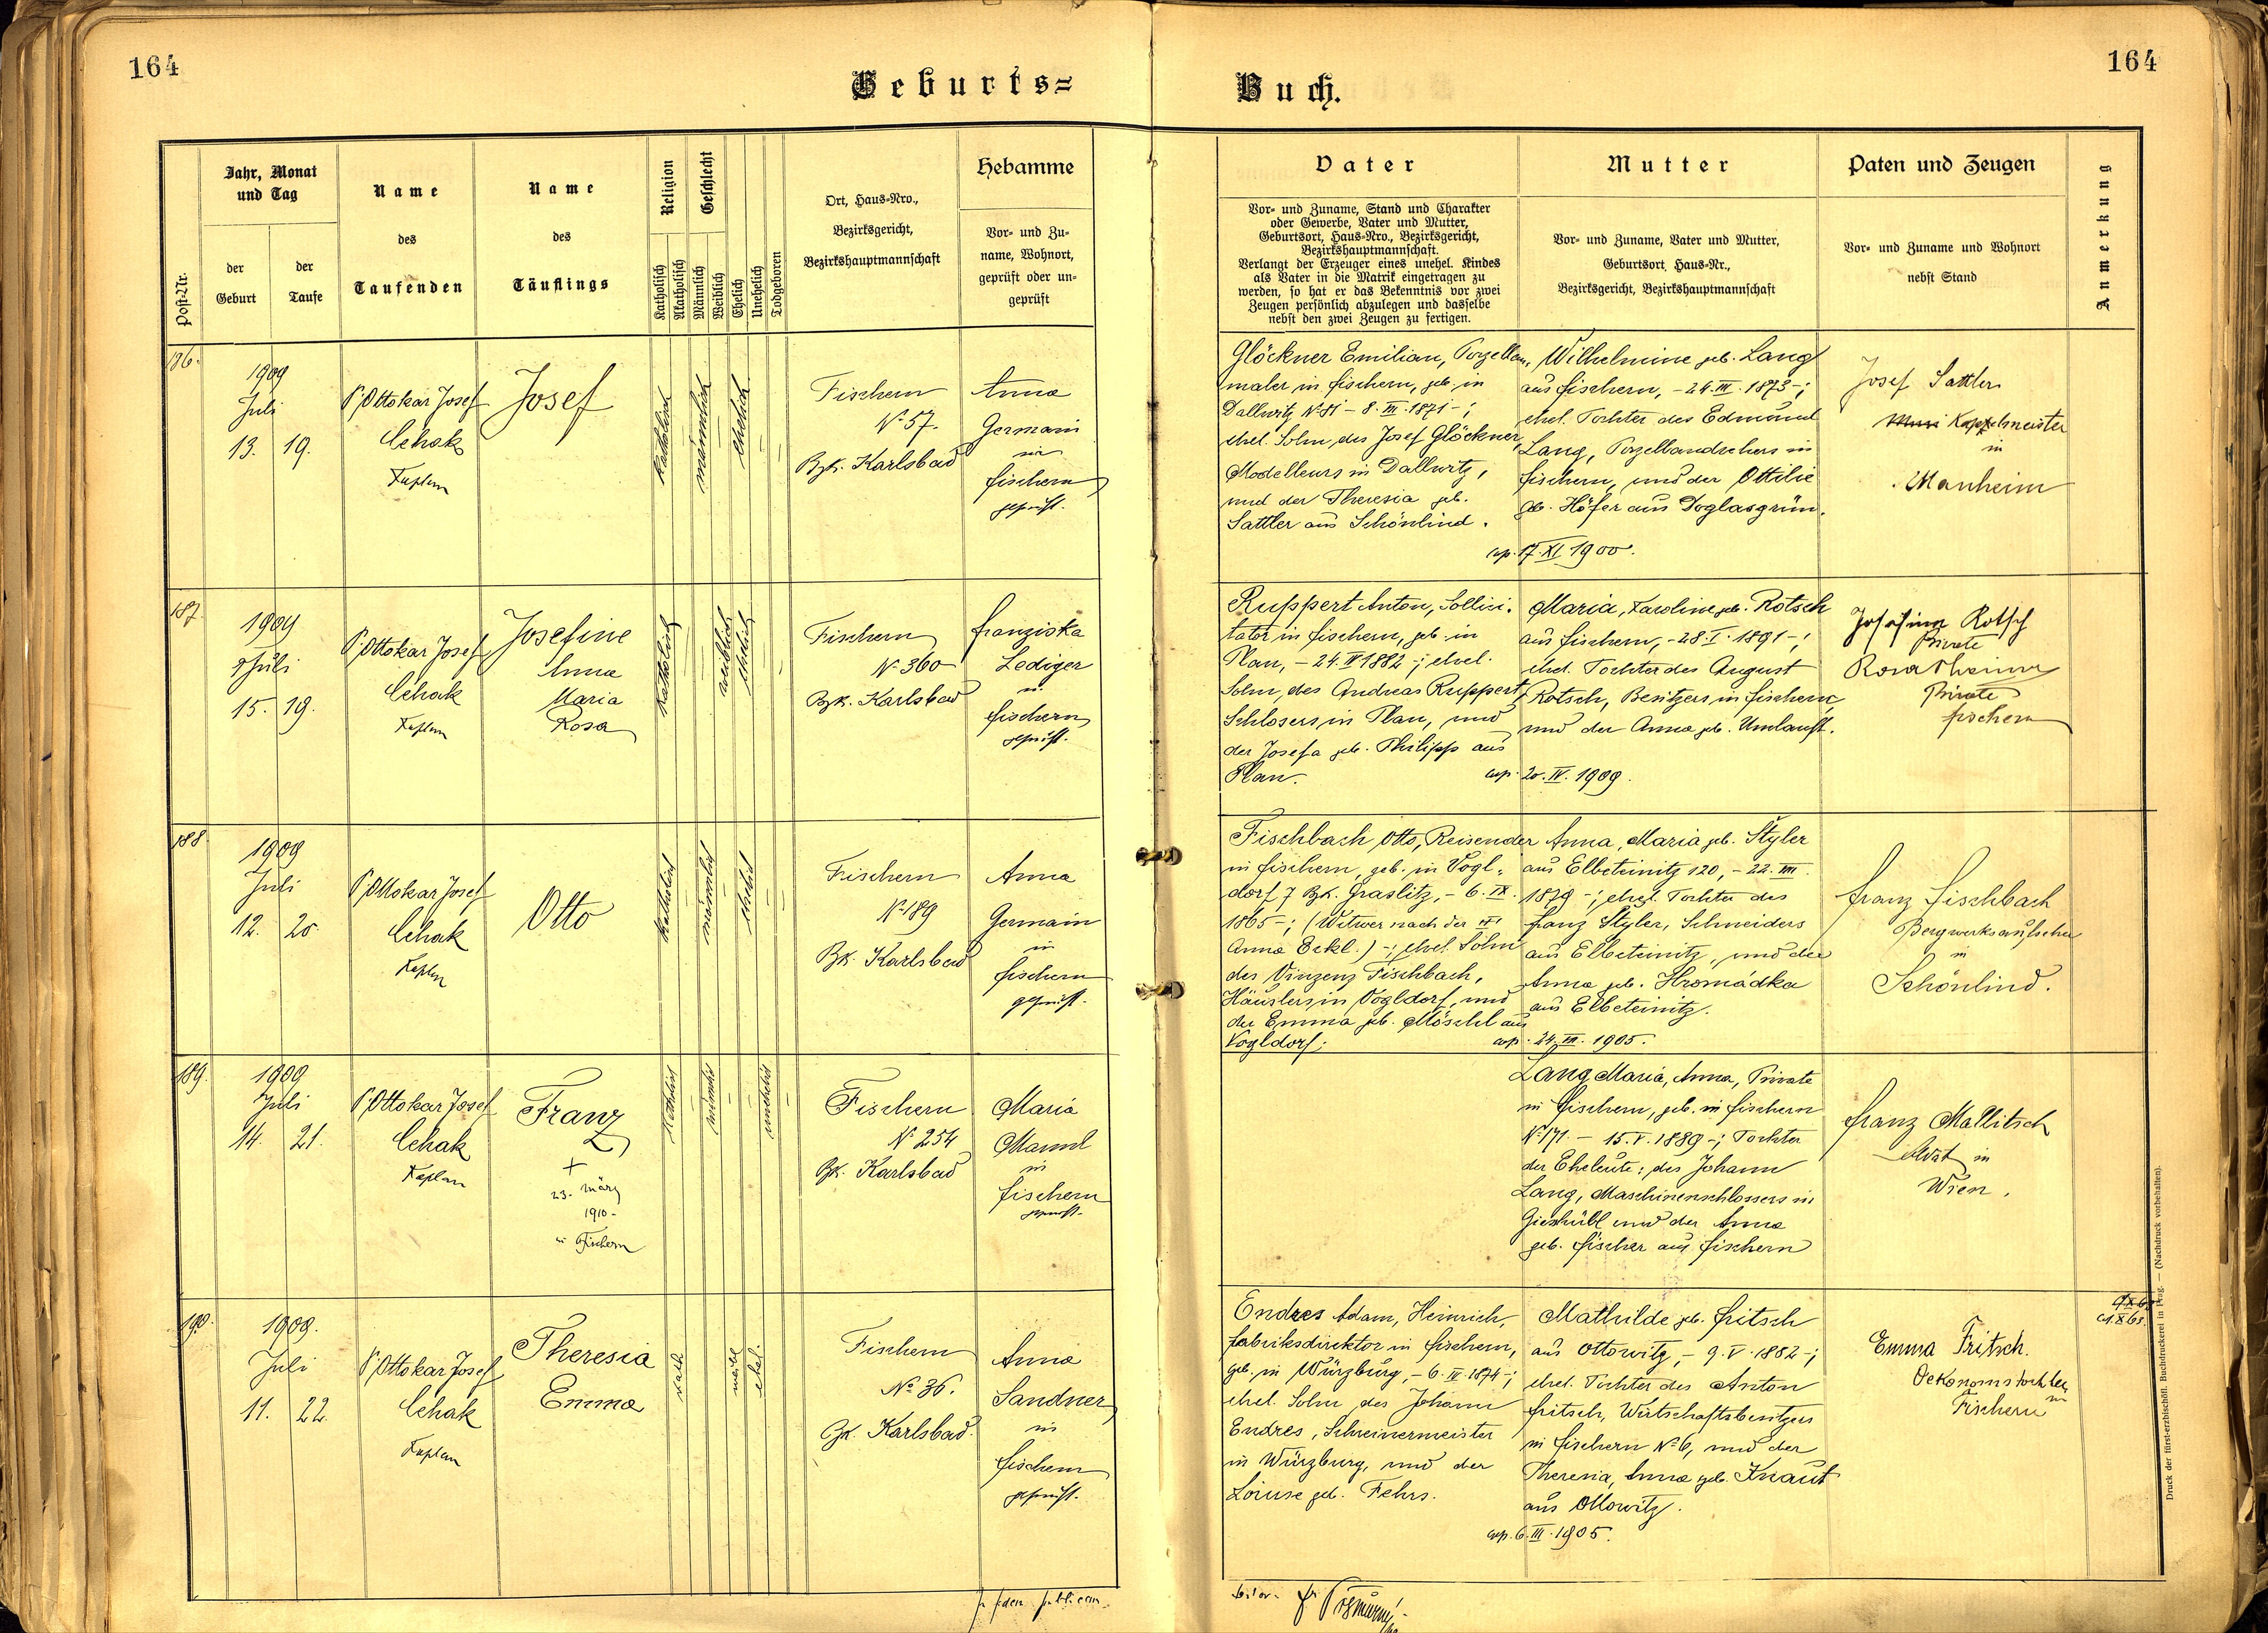 164
164
Geburts=
Buch.
Post-Nr.
Jahr, Monat
und Tag
der
Geburt
der
Taufe
Name
des
Taufenden
Name
des
Täuflings
Religion
Katholisch
Akatholisch
Geschlecht
Männlich
Weiblich
Ehelich
Unehelich
Todgeboren
Ort, Haus-Nro.,
Bezirksgericht,
Bezirkshauptmannschaft
Hebamme
Vor- und Zu-
name, Wohnort,
geprüft oder un-
geprüft
Vater
Vor- und Zuname, Stand und Charakter
oder Gewerbe, Vater und Mutter,
Geburtsort, Haus-Nro., Bezirksgericht,
Bezirkshauptmannschaft.
Verlangt der Erzeuger eines unehel. Kindes
als Vater in die Matrik eingetragen zu
werden, so hat er das Bekenntnis vor zwei
Zeugen persönlich abzulegen und dasselbe
nebst den zwei Zeugen zu fertigen.
Mutter
Vor- und Zuname, Vater und Mutter,
Geburtsort, Haus-Nr.,
Bezirksgericht, Bezirkshauptmannschaft
Paten und Zeugen
Vor- und Zuname und Wohnort
nebst Stand
Anmerkung
186.
1909
Juli
13. 19.
P. Ottokar Josef
Cehak
Kaplan
Josef
katholisch
männlich
ehelich
Fischern
N° 57.
Bzk. Karlsbad
Anna
Germain
in
Fischern
geprüft.
Glöckner Emilian, Porzellan-
maler in Fischern, geb. in
Dallwitz N° 81 - 8. III. 1871 -;
ehel. Sohn des Josef Glöckner,
Modelleurs in Dallwitz,
und der Theresia geb.
Sattler aus Schönlind.
Wilhelmine geb. Lang
aus Fischern, - 24. III. 1873 -;
ehel. Tochter des Edmund
Lang, Porzellandrehers in
Fischern, und der Ottilie
geb. Höfer aus Doglasgrün.
cop. 17. XI. 1900.
Josef Sattler
Kapelmeister
in
Manheim
187.
1909
Juli
15. 19.
P. Ottokar Josef
Cehak
Kaplan
Josefine
Anna
Maria
Rosa
katholisch
weiblich
ehelich
Fischern
N° 360
Bzk. Karlsbad
Franziska
Lediger
in
Fischern
geprüft.
Ruppert Anton, Sollici-
tator in Fischern, geb. in
Plan, - 24. II. 1882 -; ehel.
Sohn des Andreas Ruppert,
Schlosers in Plan, und
der Josefa geb. Philipp aus
Plan.
Maria, Karoline geb. Rotsch
aus Fischern, - 28. I. 1891 -;
ehel. Tochter des August
Rotsch, Besitzers in Fischern,
und der Anna geb. Umlauft.
cop. 20. IV. 1909.
Josefina Rotsch
Private
Rosa
Private
Fischern
188.
1909
Juli
12. 20.
P. Ottokar Josef
Cehak
Kaplan
Otto
katholisch
männlich
ehelich
Fischern
N° 189
Bzk. Karlsbad
Anna
Germain
in
Fischern
geprüft.
Fischbach Otto, Reisender
in Fischern, geb. in Vogl-
dorf 7 Bzk. Graslitz, - 6. IX.
1865 -; (Witwer nach der
Anna Eckl.) -; ehel. Sohn
des Vinzenz Fischbach,
Häuslers in Vogldorf, und
der Emma geb. Möschl aus
Vogldorf;
Anna, Maria geb. Styler
aus Elbeteinitz 120, - 22. VIII.
1879 -; ehel. Tochter des
Franz Styler, Schneiders
aus Elbeteinitz, und der
Anna geb. Hromádka
aus Elbeteinitz.
cop. 24. 1905.
Franz Fischbach
Bergwerksaufseher
in
Schönlind.
189.
1909
Juli
14. 21.
P. Ottokar Josef
Cehak
Kaplan
Franz
+
23. März
1910
in Fischern
katholisch
männlich
unehelich
Fischern
N° 254
Bzk. Karlsbad
Maria
Mannl
in
Fischern
geprüft.
Lang Maria, Anna, Private
in Fischern, geb. in Fischern
N° 171. - 15. V. 1889 -; Tochter
der Eheleute: des Johann
Lang, Maschinenschlossers in
Gieshübl und der Anna
geb. Fischer aus Fischern
Franz Mallitsch
in
Wien.
190.
1909.
Juli
11. 22.
P. Ottokar Josef
Cehak
Kaplan
Theresia
Emma
kath
weibl
ehel.
Fischern
N° 36.
Bzk. Karlsbad.
Anna
Sandner
in
Fischern
geprüft.
Endres Adam, Heinrich,
Fabriksdirektor in Fischern,
geb. in Würzburg, - 6. IV. 1874 -;
ehel. Sohn des Johann
Endres, Schreinermeister
in Würzburg, und der
Louise geb. Fehrs.
Mathilde geb. Fritsch
aus Ottowitz, - 9. V. 1882 -;
ehel. Tochter des Anton
Fritsch, Wirtschaftsbesitzers
in Fischern N° 6, und der
Theresia, Anna geb. Knaut
aus Ottowitz.
cop. 6. III. 1905.
Emma Fritsch.
Oekonomstochter
in
Fischern
Druck der fürst-erzbischöfl. Buchdruckerei in Prag. — (Nachdruck vorbehalten).